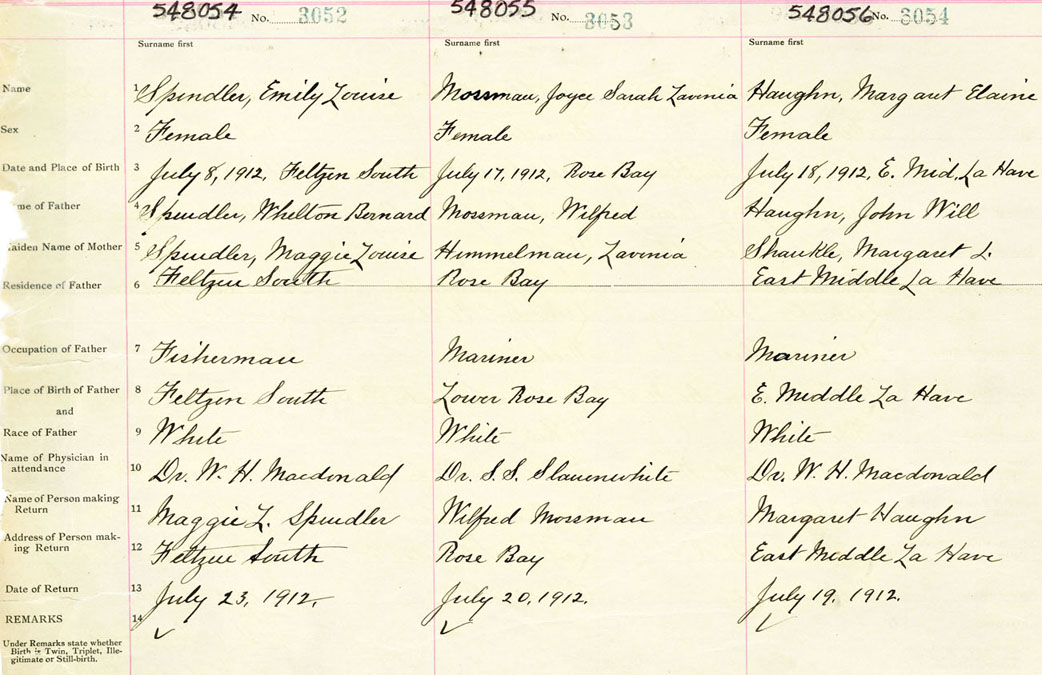 548054 No. 3052 548055 No. 3053 548056 No. 3054
Surname first Surname first Surname first
Name 1 Spindler, Emily Louise Mossman, Joyce Sarah Lavinia Haughn, Margaret Elaine
Sex 2 Female Female Female
Date and Place of Birth 3 July 8, 1912, Feltzen South July 17, 1912, Rose Bay July 18, 1912, E. Mid. La Have
me of Father 4 Spindler, Whelton Bernard Mossman, Wilfred Haughn, John Will
aiden Name of Mother 5 Spindler, Maggie Louise Himmelman, Lavinia Shankle, Margaret L.
Residence of Father 6 Feltzen South Rose Bay East Middle La Have
Occupation of Father 7 Fisherman Mariner Mariner
Place of Birth of Father 8 Feltzen South Lower Rose Bay E. Middle La Have
and
Race of Father 9 White White White
Name of Physician in
attendance 10 Dr. W. H. Macdonald Dr. S. S. Slauenwhite Dr. W. H. Macdonald
Name of Person making
Return 11 Maggie L. Spindler Wilfred Mossman Margaret Haughn
Address of Person mak-
ing Return 12 Feltzen South Rose Bay East Middle La Have
Date of Return 13 July 23, 1912. July 20, 1912. July 19, 1912.
REMARKS 14 ✓ ✓ ✓
Under Remarks state whether
Birth is Twin, Triplet, Ille-
gitimate or Still-birth.